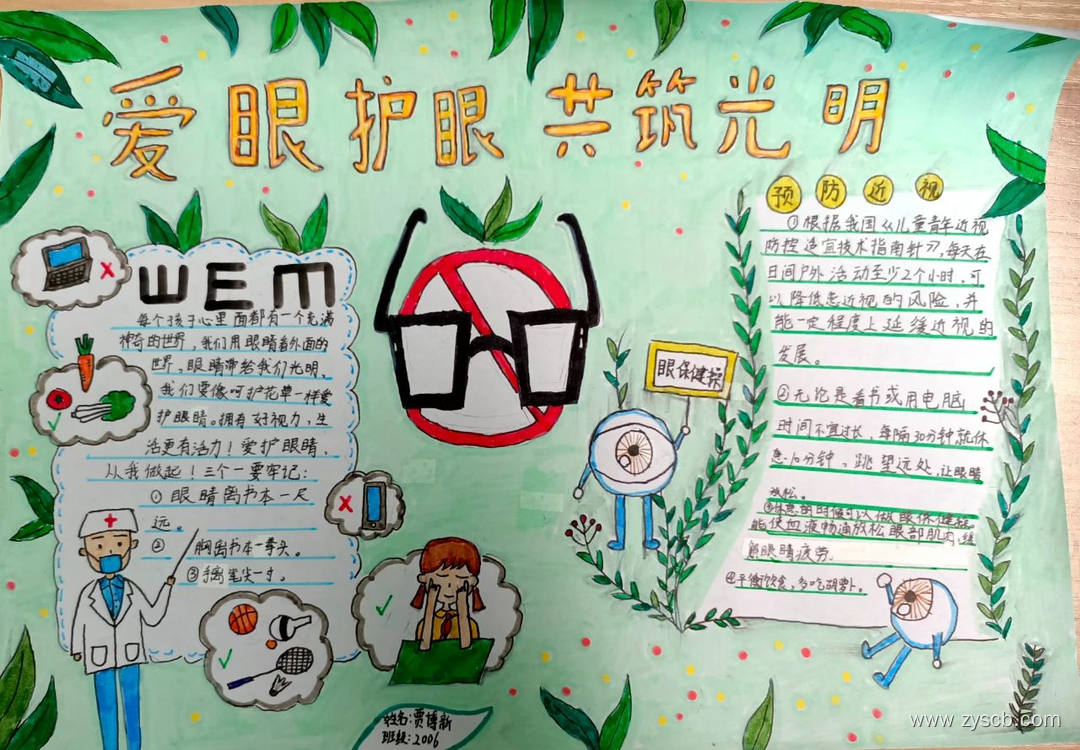 爱眼护眼 共筑光明
WEM
每个孩子心里面都有一个充满
神奇的世界，我们用眼睛看外面的
世界，眼睛带给我们光明，
我们要像呵护花草一样爱
护眼睛。拥有好视力，生
活更有活力！爱护眼睛，
从我做起！三个一要牢记：
①眼睛离书本一尺
远。
② 胸离书本一拳头。
③ 握笔尖一寸。
眼保健操
预防近视
①根据我国《儿童青年近视
防控适宜技术指南针》，每天在
日间户外活动至少2个小时，可
以降低患近视的风险，并
能一定程度上延缓近视的
发展。
②无论是看书或用电脑，
时间不宜过长，每隔30分钟就休
息10分钟，眺望远处，让眼睛
放松。
③休息的时候可以做眼保健操，
能使血液畅通放松眼部肌肉，缓
解眼睛疲劳。
④平衡饮食，多吃胡萝卜。
姓名:贾博新
班级:2006
www.zyscb.com